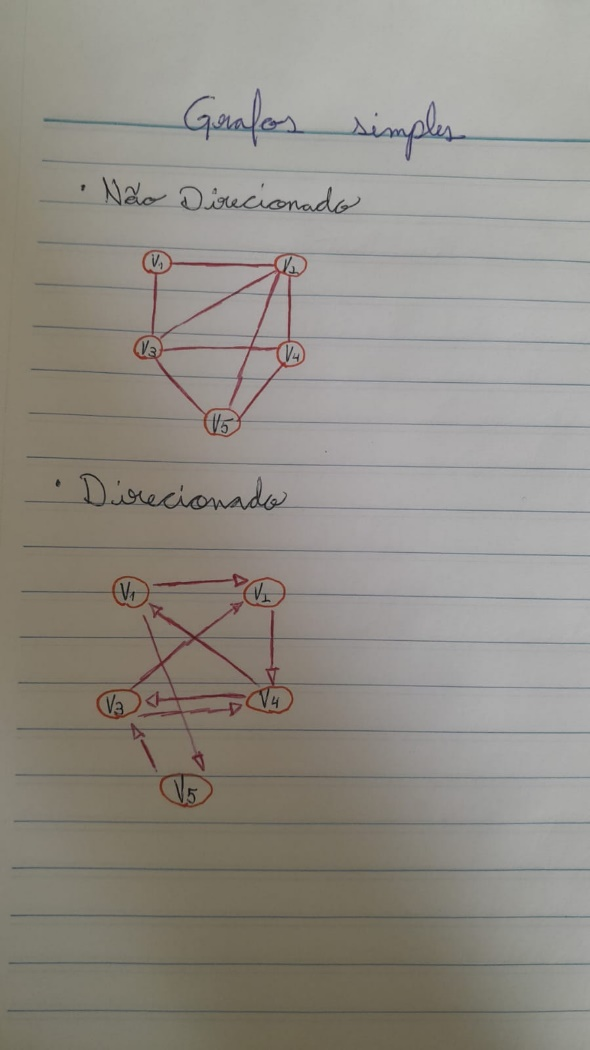 Grafos simples
· Não Direcionado
V1 V2
V3 V4
V5
· Direcionado
V1 V2
V3 V4
V5